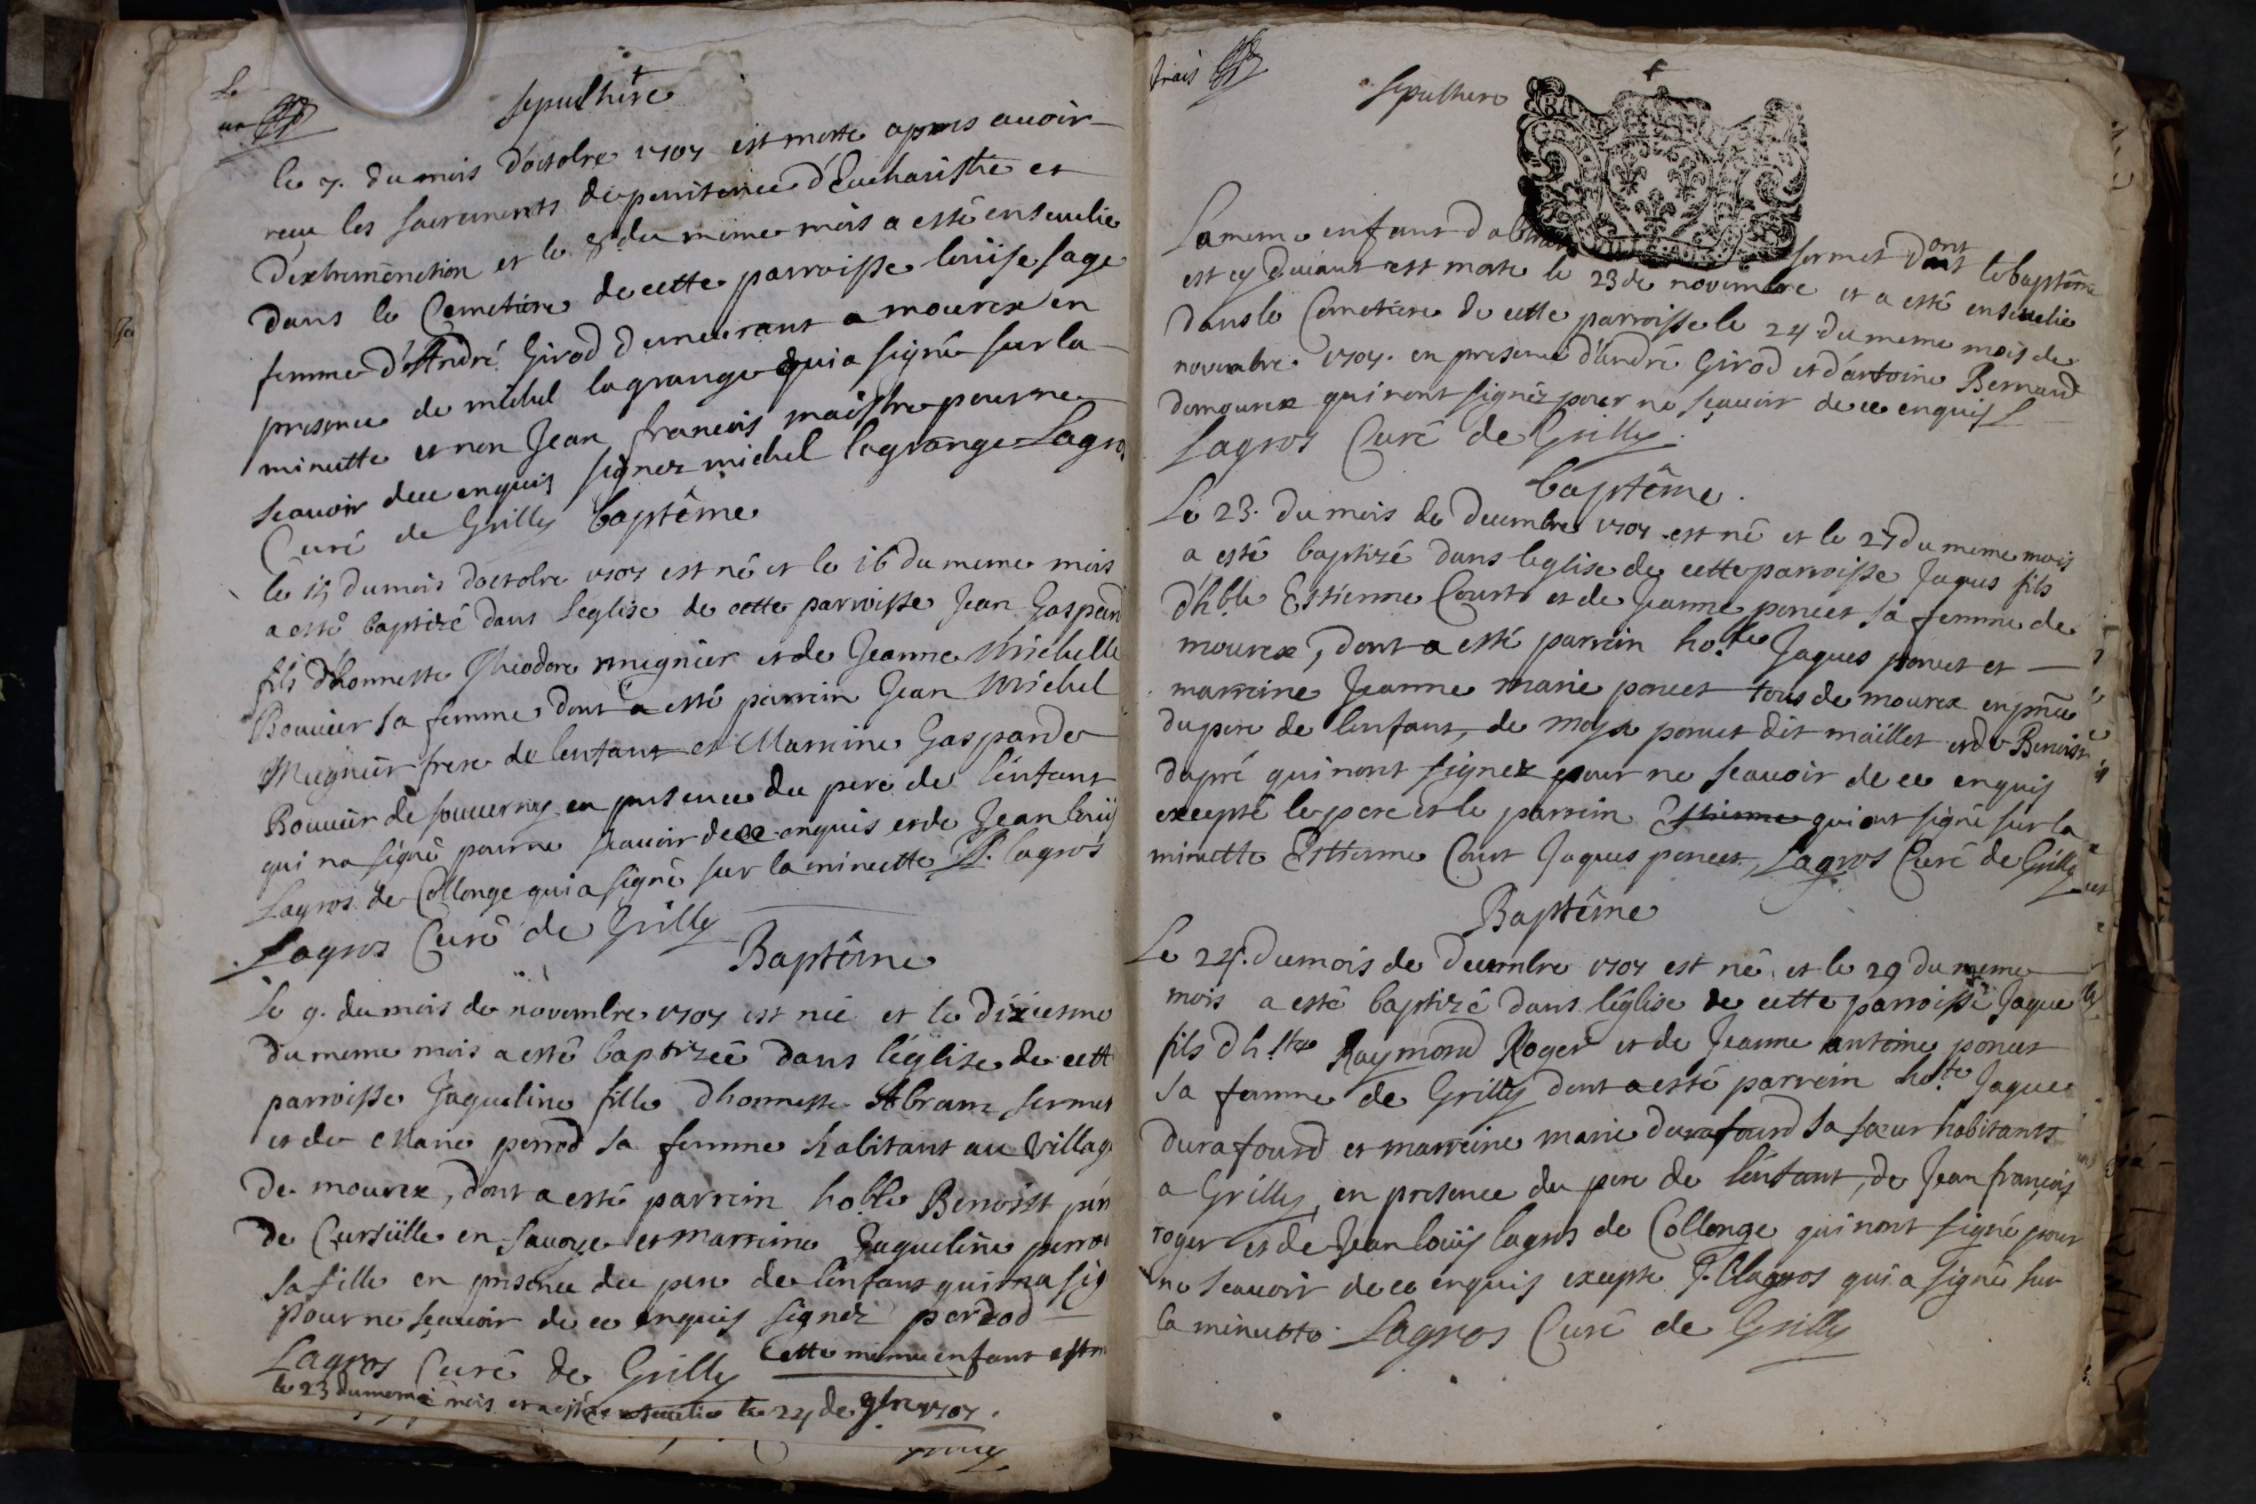 Sepulture
le 7. du mois d'octobre 1707 est morte apres auoir
receu les sacrements de penitence d'Eucharistie et
d'extremonction et le 8 du mime mois a esté enseuelie
dans le Cemetiere de cette parroisse louise sage
femme d'André Girod demeurant a mourex en
presence de michel lagrange qui a signé sur la
minutte et non Jean francois maistre pour ne
scauoir de ce enquis signez michel lagrange Lagros
Curé de Grilly
baptême
le 15 du mois doctobre 1707 est né et le 16 du meme mois
a esté baptizé dans l'eglise de cette parroisse Jean Gaspard
fils d'honneste Theodore mugnier et de Jeanne Michelle
Bouuier sa femme dont a esté parrain Jean Michel
Mugnier frere de lenfant et Marraine Gasparde
Bouuier de souuerny en presence du pere de l'enfant
qui na signé pour ne scauoir de ce enquis et de Jean louys
Lagros de Collonge qui a signé sur la minutte J. lagros
Lagros Curé de Grilly
Baptême
Le 9. du mois de nouembre 1707 est née et le dixiesme
du meme mois a esté baptizée dans l'église de cett
parroisse Jaqueline fille d'honneste Abram sermet
et de Marie perrod sa femme habitant au Villag
de mourex, dont a esté parrein ho.ble Benoist
de Cursülle en Sauoye et marraine Jaqueline
sa fille en presence du pere de l'enfant qui na sig
pour ne scauoir de ce enquis signez perrod
Lagros Curé de Grilly Cette mime enfant est
le 23 du meme mois et a esté enseuelie le 24 de 9bre 1707.
trois
Sepulture
La meme enfant d'abram sermet dont le baptême
est cy deuant est morte le 23 de nouembre et a esté enseuelie
dans le Cemetiere de cette parroisse le 24 du meme mois de
nouembre 1707. en presence d'andré Girod et d'antoine Bernard
de mourex qui n'ont signéz pour ne sçauoir de ce enquis
Lagros Curé de Grilly.
baptême.
Le 23. du mois de decembre 1707 est né et le 27 du meme mois
a esté baptizé dans leglise de cette parroisse Jaques fils
d'h.ble Estienne Court et de Jeanne poncet sa femme de
mourex, dont a esté parrain ho.ble Jaques poncet et
marraine Jeanne marie poncet tous de mourex en pnce
du pere de lenfant, de poncet dit maillet et de Benoist
dupré qui n'ont signez pour ne scauoir de ce enquis
excepté le pere et le parrain Estienne qui ont signé sur la
minutte Estienne Court Jaques poncet, Lagros Curé de Grilly
Baptême
Le 24. du mois de decembre 1707 est né et le 29 du meme
mois a esté baptizé dans l'église de cette parroisse Jaque
fils d'h.ste Raymond Roger et de Jeanne antoine poncet
sa femme de Grilly dont a esté parrein ho.te Jaque
durafourd et marreine marie durafourd sa sœur habitants
a Grilly, en presence du pere de lenfant, de Jean françois
roger et de Jean louÿs lagros de Collonge qui n'ont signé pour
ne scauoir de ce enquis excepte J. lagros qui a signé sur
la minutte. Lagros Curé de Grilly